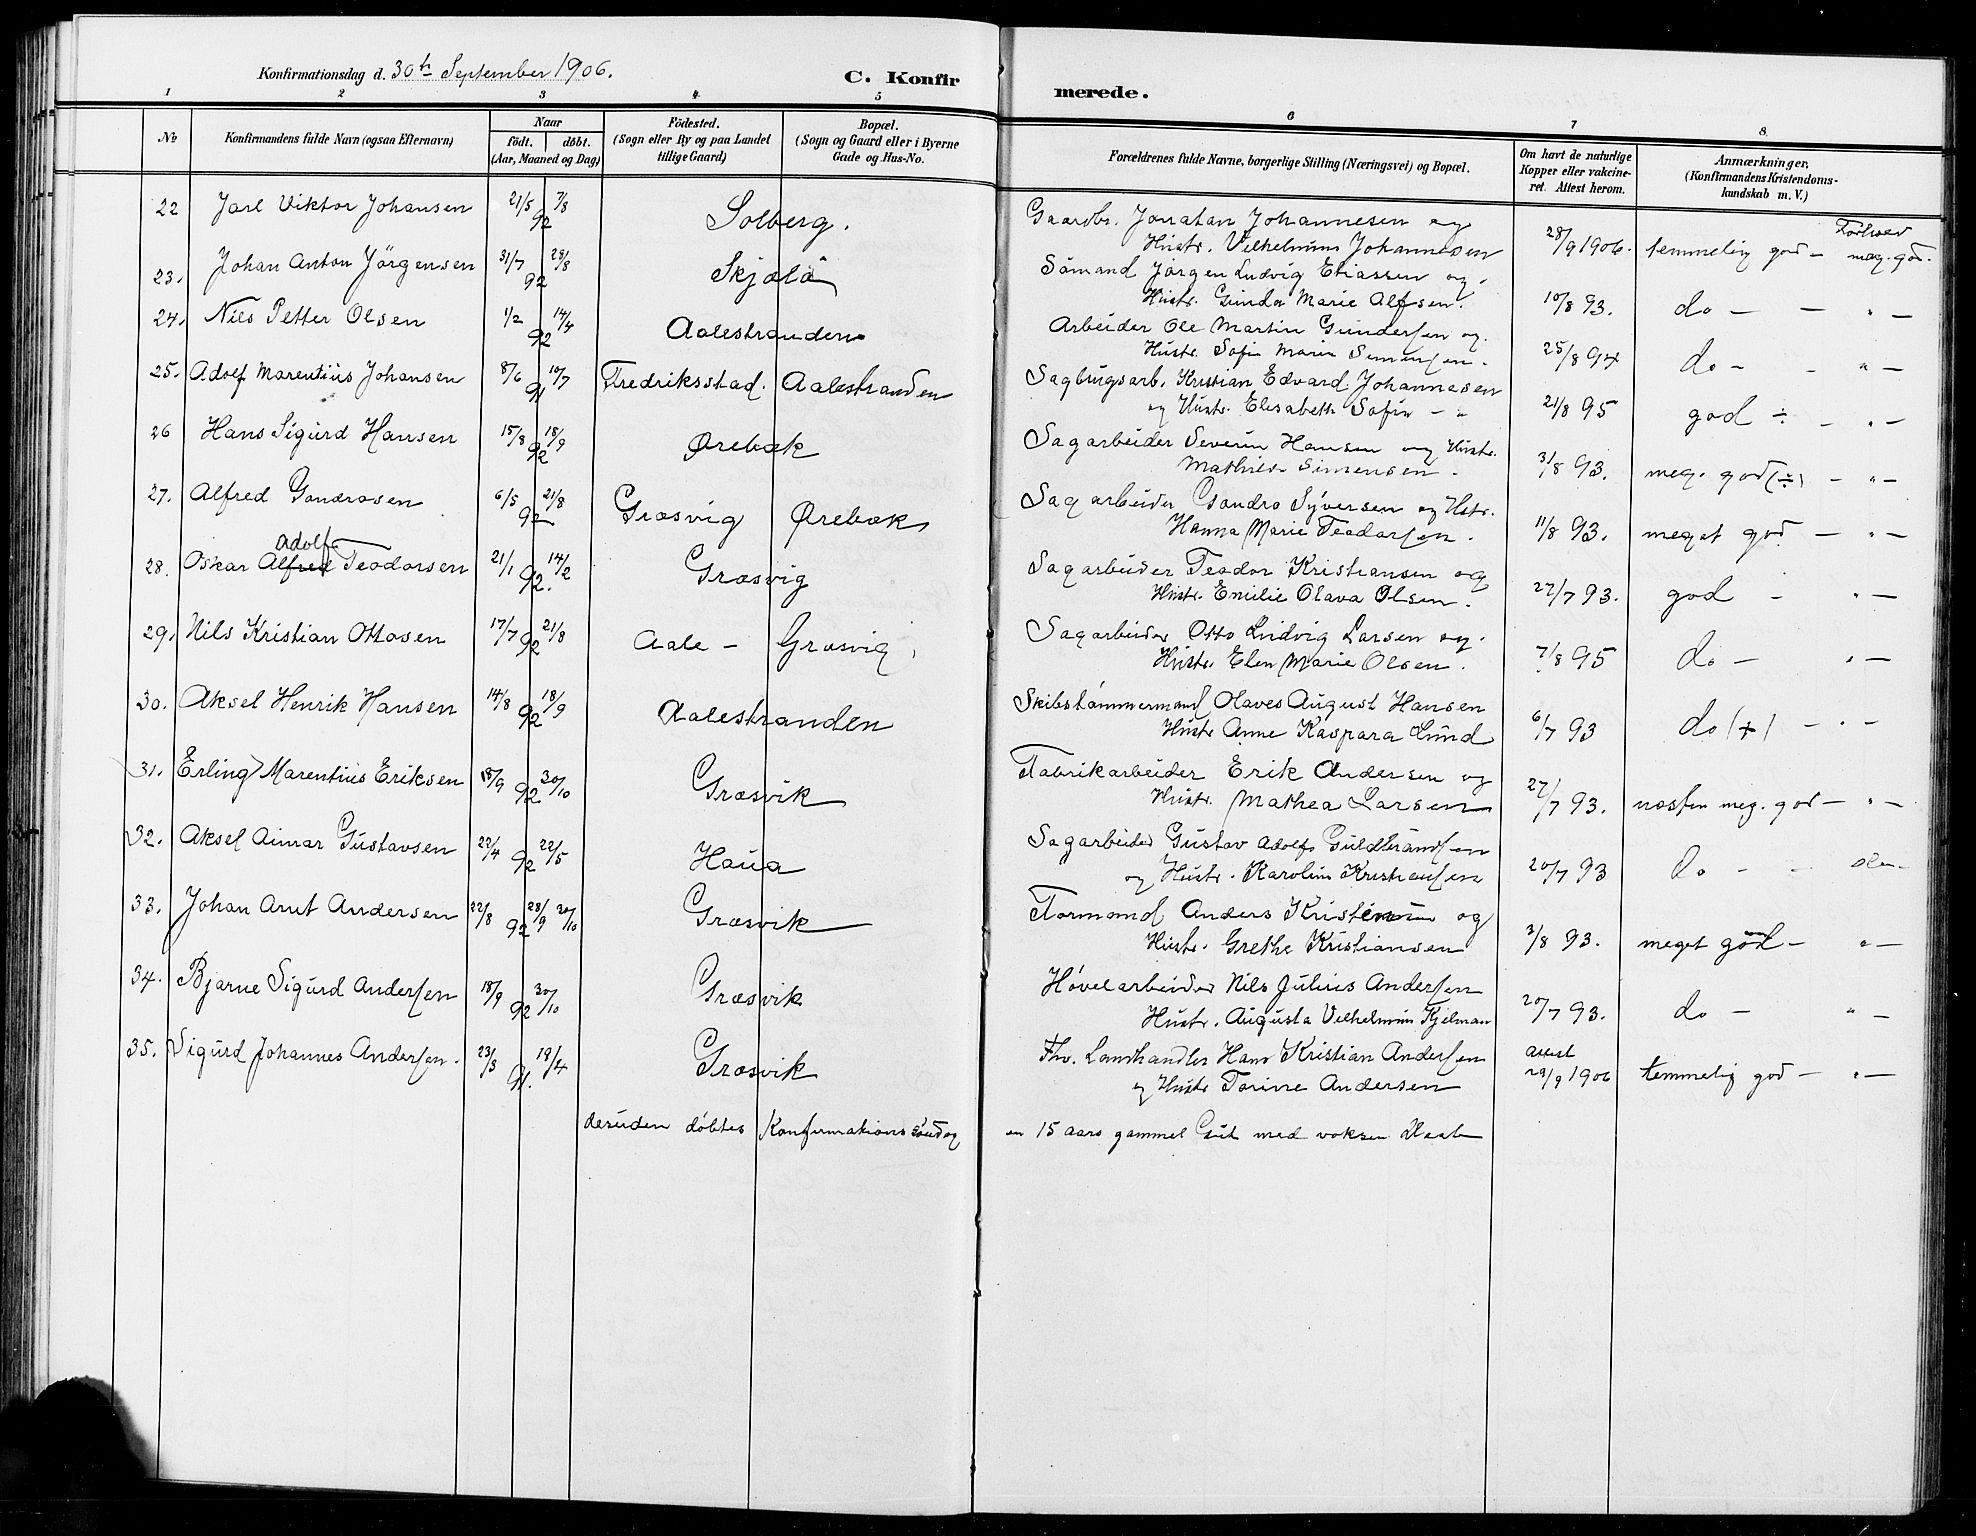 Konfirmationsdag d. 30te September 1906.
C. Konfirmerede.
1 2 3 4 5 6 7 8
No
Konfirmandens fulde Navn (ogsaa Efternavn)
Naar
födt. döbt.
(Aar, Maaned og Dag)
Födested.
(Sogn eller By og paa Landet
tillige Gaard)
Bopæl.
(Sogn og Gaard eller i Byerne
Gade og Hus-No.
Forældrenes fulde Navne, borgerlige Stilling (Næringsvei) og Bopæl.
Om havt de naturlige
Kopper eller vakcine-
ret. Attest herom.
Anmærkninger,
(Konfirmandens Kristendoms-
kundskab m. V.)
22 Jarl Viktor Johansen 21/5 92 7/8 Solberg.
Gaardbr. Jonatan Johannesen og
Hustr. Vilhelmine Johannesen 28/9 1906. temmelig god – Forhold meg. god.
23. Johan Anton Jörgensen 31/7 92 28/8 Skjælö
Sömand Jörgen Ludvig Eliassen og
Hustr. Gunda Marie Alfsen. 10/8 93. do – – " –
24. Nils Petter Olsen 1/2 92 14/4 Aalestranden
Arbeider Ole Martin Gundersen og
Hustr. Sofie Marie Simensen. 25/8 94 do – – " –
25. Adolf Marentius Johansen 8/6 91 10/7 Fredriksstad. Aalestranden
Sagbrugsarb. Kristian Edvard Johannesen
og Hustr. Elisabeth Sofie – " 21/8 95 god ÷ – " –
26 Hans Sigurd Hansen 15/8 92 18/9 Ørebæk
Sagarbeider Severin Hansen og Hustr.
Mathilde Simensen. 31/8 93. meg. god (÷) – " –
27. Alfred Gondrosen 6/5 92 21/8 Græsvig Ørebæk
Sagarbeider Gondro Syversen og Hstr.
Hanna Marie Teodorsen. 11/8 93. meget god – " –
28. Oskar Alfred Adolf Teodorsen 21/1 92. 14/2 Græsvig
Sagarbeider Teodor Kristiansen og
Hustr. Emilie Olava Olsen. 27/7 93. god – " –
29. Nils Kristian Ottosen 17/7 92 21/8 Aale – Græsvig
Sagarbeider Otto Ludvig Larsen og
Hustr. Elen Marie Olsen. 7/8 95 do – " –
30. Aksel Henrik Hansen 14/8 92 18/9 Aalestranden
Skibstømmermand Olaves August Hansen
Hustr Anne Kaspara Lund 6/7 93 do (+) – " –
31. Erling Marentius Eriksen 18/9 92 30/10 Græsvik
Fabrikarbeider Erik Andersen og
Hustr. Mathea Larsen 27/7 93. næsten meg. god – " –
32. Aksel Aimar Gustavsen 22/4 92 22/5 Haua
Sagarbeider Gustav Adolf Guldbrandsen
og Hustr. Karoline Kristiansen 20/7 93 do – –
33. Johan Arnt Andersen 22/8 92 28/9 30/10 Græsvik
Formand Anders Kristensen og
Hustr. Grethe Kristiansen 3/8 93. meget god – " –
34. Bjarne Sigurd Andersen 18/9 92 30/10 Græsvik
Høvelarbeider Nils Julius Andersen
Hustr. Augusta Vilhelmine Kjelman 20/7 93. do – " –
35. Sigurd Johannes Andersen. 23/3 91. 19/4 Græsvik
Fhv. Landhandler Hans Kristian Andersen
og Hustr Torine Andersen attest 29/9 1906 temmelig god – " –
desuden døbtes Konfirmationssöndag en 15 aars gammel Gut med voksen Daab